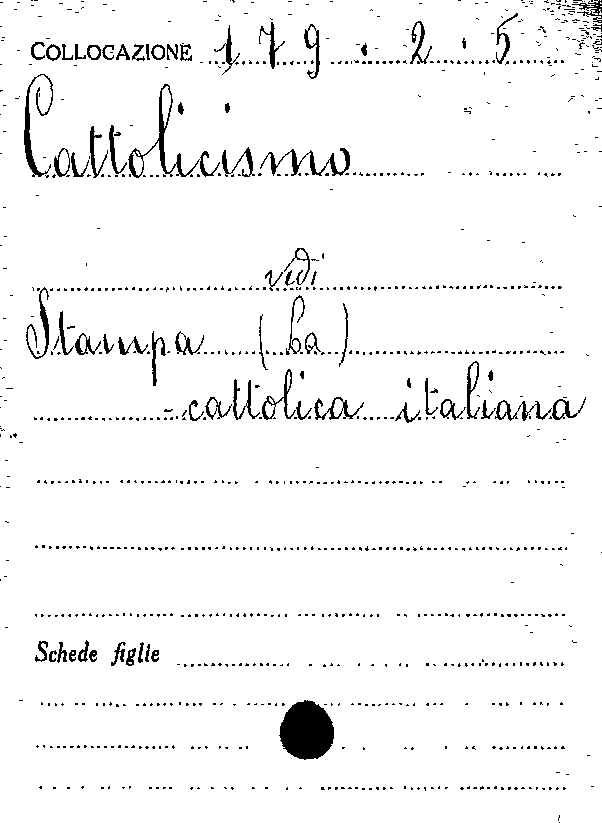 COLLOCAZIONE 179.2.5
Cattolicismo
vedi
Stampa (La)
-cattolica italiana
Schede figlie